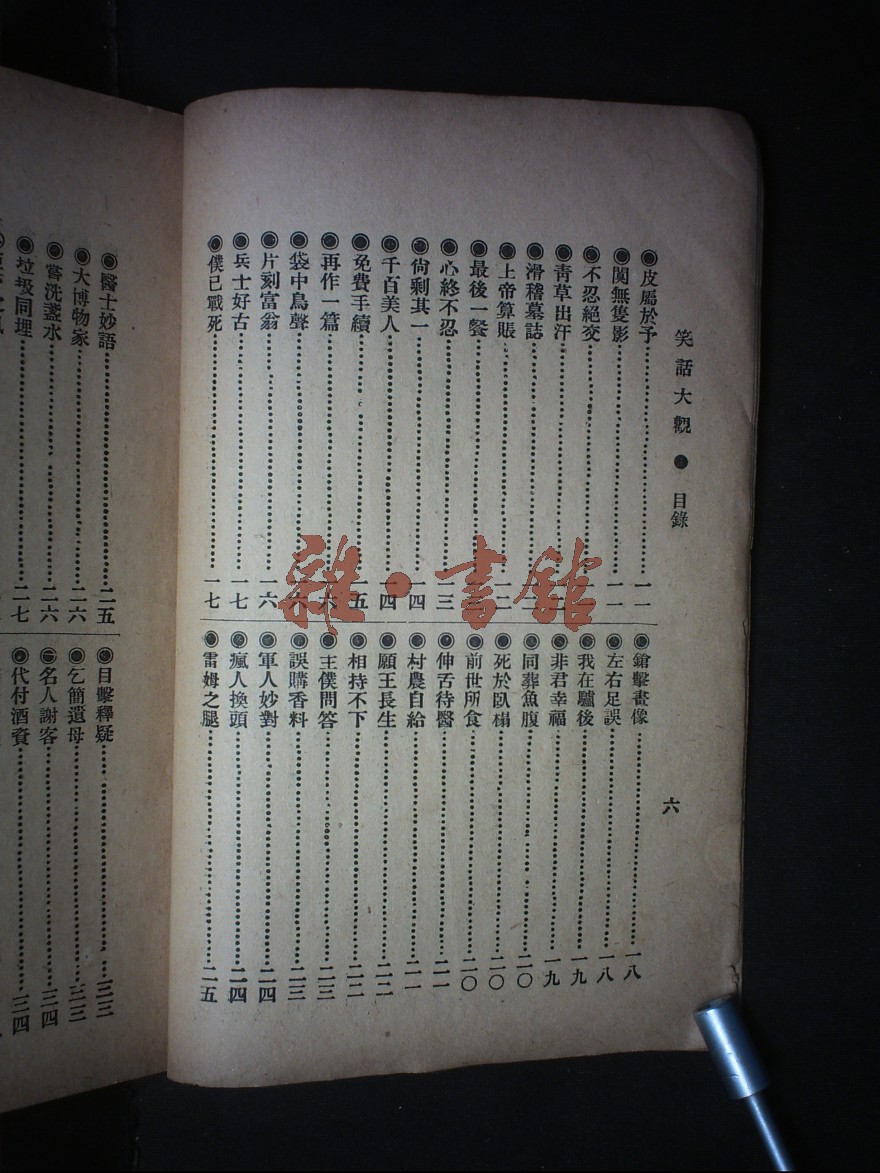 笑話大觀 ● 目錄 六
◉皮屬於予……一一
◉闃無隻影……一一
◉不忍絕交……一一
◉靑草出汗……
◉滑稽墓誌……
◉上帝算賬……
◉最後一餐……
◉心終不忍……一三
◉尙剩其一……一四
◉千百美人……一四
◉免費手續……一五
◉再作一篇……一六
◉袋中鳥聲……一六
◉片刻富翁……一六
◉兵士好古……一七
◉僕已戰死……一七
◉鎗擊畫像……一八
◉左右足誤……一八
◉我在驢後……一九
◉非君幸福……一九
◉同葬魚腹……二〇
◉死於臥榻……二〇
◉前世所食……二〇
◉伸舌待醫……二一
◉村農自給……二一
◉願王長生……二二
◉相持不下……二二
◉主僕問答……二三
◉誤購香料……二三
◉軍人妙對……二四
◉瘋人換頭……二四
◉雷姆之腿……二五
◉醫士妙語……二五
◉大博物家……二六
◉嘗洗盞水……二六
◉垃圾同埋……二七
◉目擊釋疑……三三
◉乞簡遺母……三三
◉名人謝客……三四
◉代付酒資……三四
雜·書館